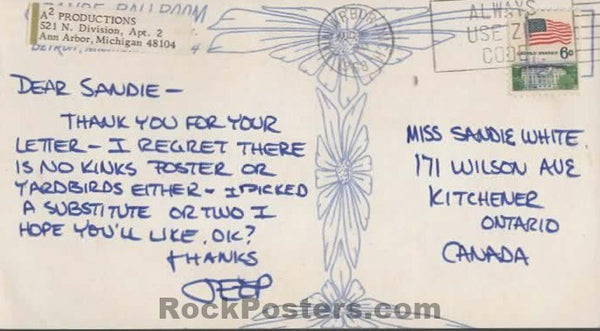 GRANDE BALLROOM
A² PRODUCTIONS
521 N. Division, Apt. 2
Ann Arbor, Michigan 48104
DETROIT, MICHIGAN
ANN ARBOR, MICH
ALWAYS
USE ZIP
CODE
UNITED STATES 6c
DEAR SANDIE —
THANK YOU FOR YOUR
LETTER — I REGRET THERE
IS NO KINKS POSTER OR
YARDBIRDS EITHER — I PICKED
A SUBSTITUTE OR TWO I
HOPE YOU'LL LIKE, OK?
THANKS
JEEP
MISS SANDIE WHITE.
171 WILSON AVE
KITCHENER
ONTARIO
CANADA
RockPosters.com